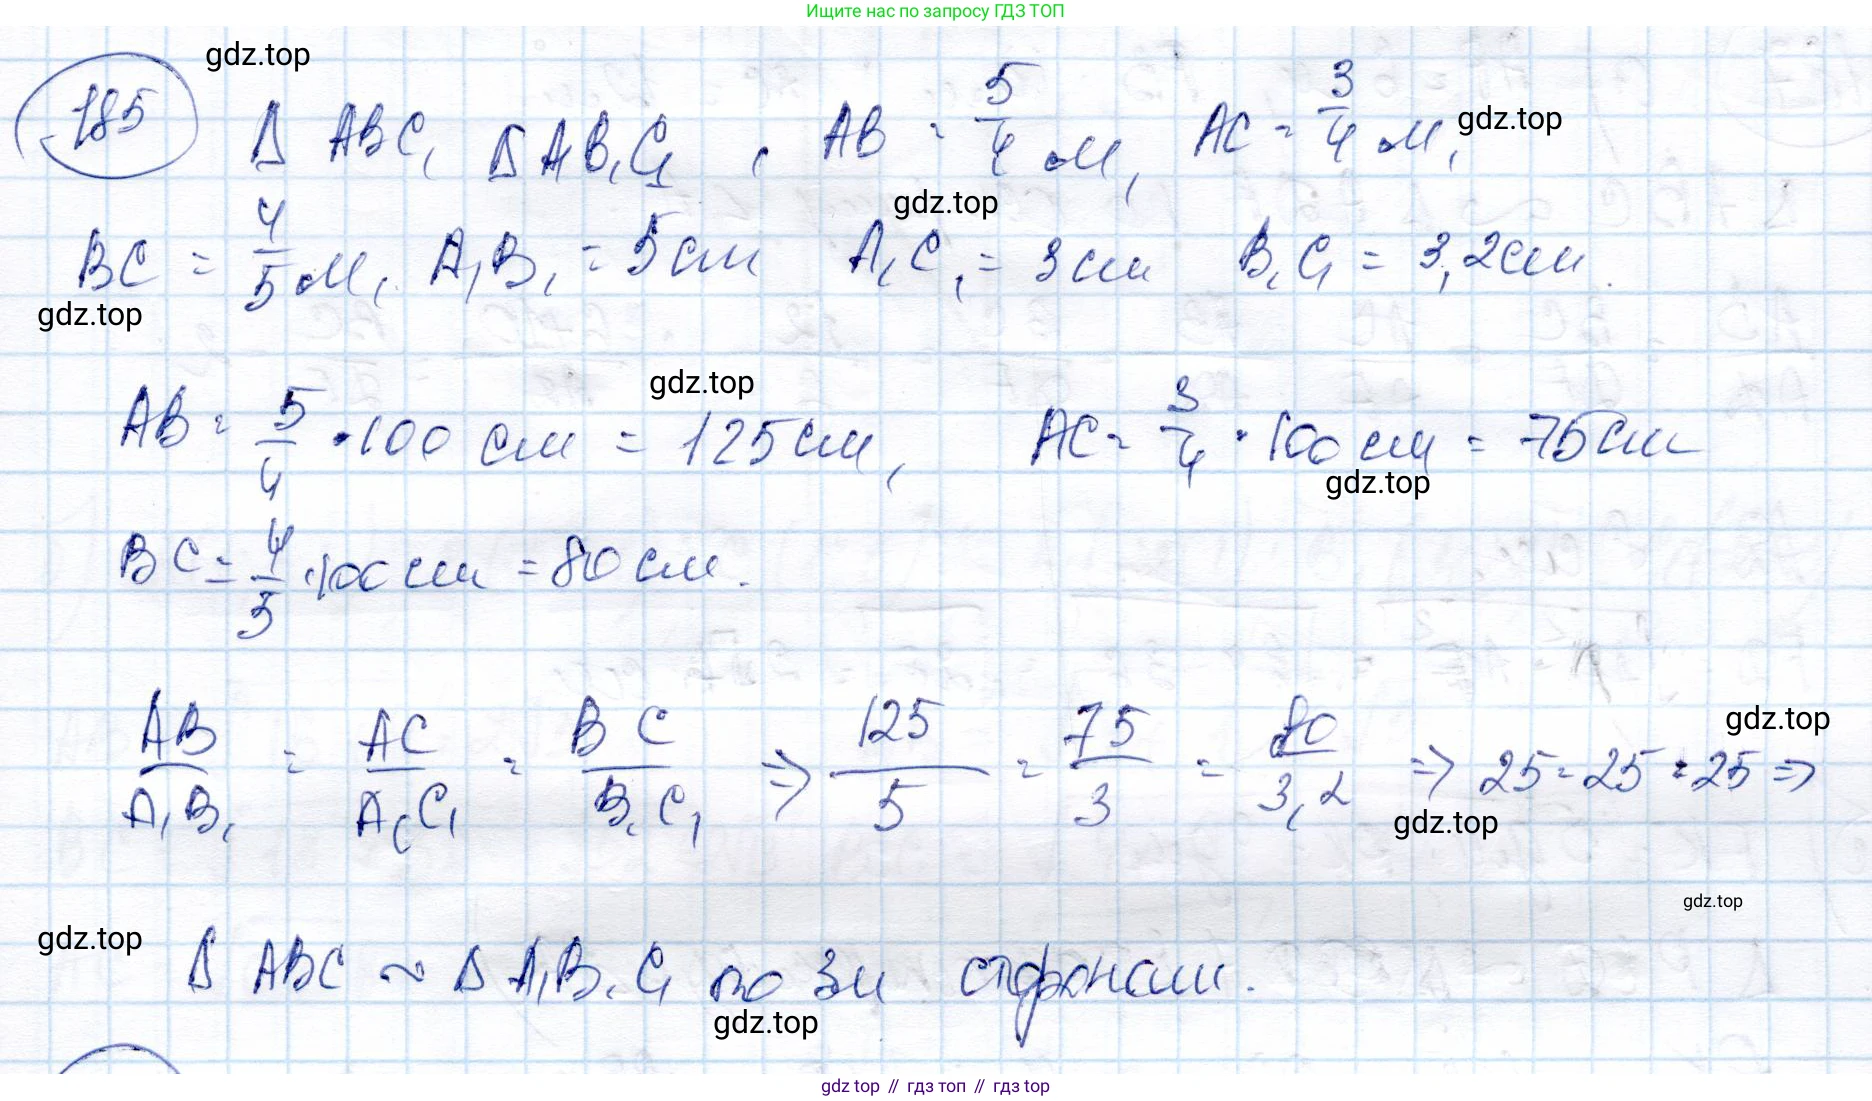 Ищите нас по запросу ГДЗ ТОП
gdz.top
185 Δ ABC, Δ A₁B₁C₁, AB = 5/4 м, AC = 3/4 м,
gdz.top
gdz.top
BC = 4/5 м, A₁B₁ = 5 см A₁C₁ = 3 см B₁C₁ = 3,2 см.
gdz.top
gdz.top
AB = 5/4 · 100 см = 125 см, AC = 3/4 · 100 см = 75 см
gdz.top
BC = 4/5 · 100 см = 80 см.
gdz.top
AB/A₁B₁ = AC/A₁C₁ = BC/B₁C₁ => 125/5 = 75/3 = 80/3,2 => 25 = 25 = 25 =>
gdz.top
gdz.top
gdz.top
Δ ABC ~ Δ A₁B₁C₁ по 3м сторонам.
gdz.top
gdz top // гдз топ // gdz top